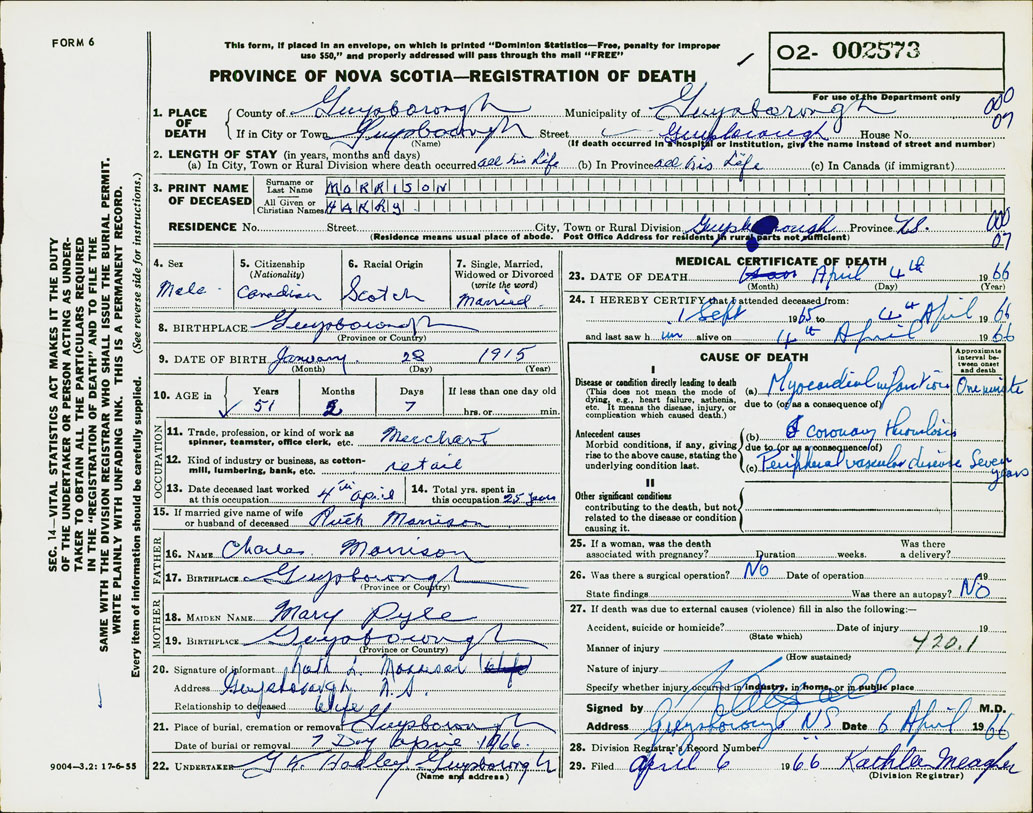 FORM 6
This form, if placed in an envelope, on which is printed "Dominion Statistics—Free, penalty for improper
use $50," and properly addressed will pass through the mail "FREE"
02- 002573
PROVINCE OF NOVA SCOTIA—REGISTRATION OF DEATH
For use of the Department only
000
07
1. PLACE OF DEATH County of Guysborough Municipality of Guysborough
If in City or Town Guysborough Street Guysborough House No.
(Name) (If death occurred in a hospital or institution, give the name instead of street and number)
2. LENGTH OF STAY (in years, months and days)
(a) In City, Town or Rural Division where death occurred all his Life (b) In Province all his Life (c) In Canada (if immigrant)
3. PRINT NAME OF DECEASED Surname or Last Name MORRISON
All Given or Christian Names HARRY
RESIDENCE No. Street City, Town or Rural Division Guysborough Province N.S.
(Residence means usual place of abode. Post Office Address for residents in rural parts not sufficient)
000
07
4. Sex Male
5. Citizenship (Nationality) Canadian
6. Racial Origin Scotch
7. Single, Married, Widowed or Divorced (write the word) Married
8. BIRTHPLACE Guysborough
(Province or Country)
9. DATE OF BIRTH January 28 1915
(Month) (Day) (Year)
10. AGE in Years 51 Months 2 Days 7 If less than one day old hrs. or min.
OCCUPATION
11. Trade, profession, or kind of work as spinner, teamster, office clerk, etc. Merchant
12. Kind of industry or business, as cotton-mill, lumbering, bank, etc. retail
13. Date deceased last worked at this occupation 4th April
14. Total yrs. spent in this occupation 25 years
15. If married give name of wife or husband of deceased Ruth Morrison
FATHER
16. NAME Charles Morrison
17. BIRTHPLACE Guysborough
(Province or Country)
MOTHER
18. MAIDEN NAME Mary Pyle
19. BIRTHPLACE Guysborough
(Province or Country)
20. Signature of informant Ruth L. Morrison
Address Guysborough N.S.
Relationship to deceased Wife
21. Place of burial, cremation or removal Guysborough
Date of burial or removal 7 Day April 1966
22. UNDERTAKER Guysborough
(Name and address)
MEDICAL CERTIFICATE OF DEATH
23. DATE OF DEATH April 4th 1966
(Month) (Day) (Year)
24. I HEREBY CERTIFY that I attended deceased from:
1 Sept 1965 to 4th April 1966
and last saw h im alive on 4th April 1966
CAUSE OF DEATH
Approximate interval between onset and death
I
Disease or condition directly leading to death
(This does not mean the mode of dying, e.g., heart failure, asthenia, etc. It means the disease, injury, or complication which caused death.)
(a) Myocardial infarction One minute
due to (or as a consequence of)
Antecedent causes
Morbid conditions, if any, giving rise to the above cause, stating the underlying condition last.
(b) coronary thrombosis
due to (or as a consequence of)
(c) Peripheral vascular disease Seven years
II
Other significant conditions
contributing to the death, but not related to the disease or condition causing it.
25. If a woman, was the death associated with pregnancy? Duration weeks. Was there a delivery?
26. Was there a surgical operation? No Date of operation 19
State findings Was there an autopsy? No
27. If death was due to external causes (violence) fill in also the following:—
Accident, suicide or homicide? Date of injury 19
(State which)
Manner of injury 420.1
(How sustained)
Nature of injury
Specify whether injury occurred in industry, in home, or in public place
Signed by M.D.
Address Guysborough NS Date 6 April 1966
28. Division Registrar's Record Number
29. Filed April 6 1966 Kathleen Meagher
(Division Registrar)
SEC. 14—VITAL STATISTICS ACT MAKES IT THE DUTY
OF THE UNDERTAKER OR PERSON ACTING AS UNDER-
TAKER TO OBTAIN ALL THE PARTICULARS REQUIRED
IN THE "REGISTRATION OF DEATH" AND TO FILE THE
SAME WITH THE DIVISION REGISTRAR WHO SHALL ISSUE THE BURIAL PERMIT.
WRITE PLAINLY WITH UNFADING INK. THIS IS A PERMANENT RECORD.
Every item of information should be carefully supplied. (See reverse side for instructions.)
9004—3.2: 17-6-55